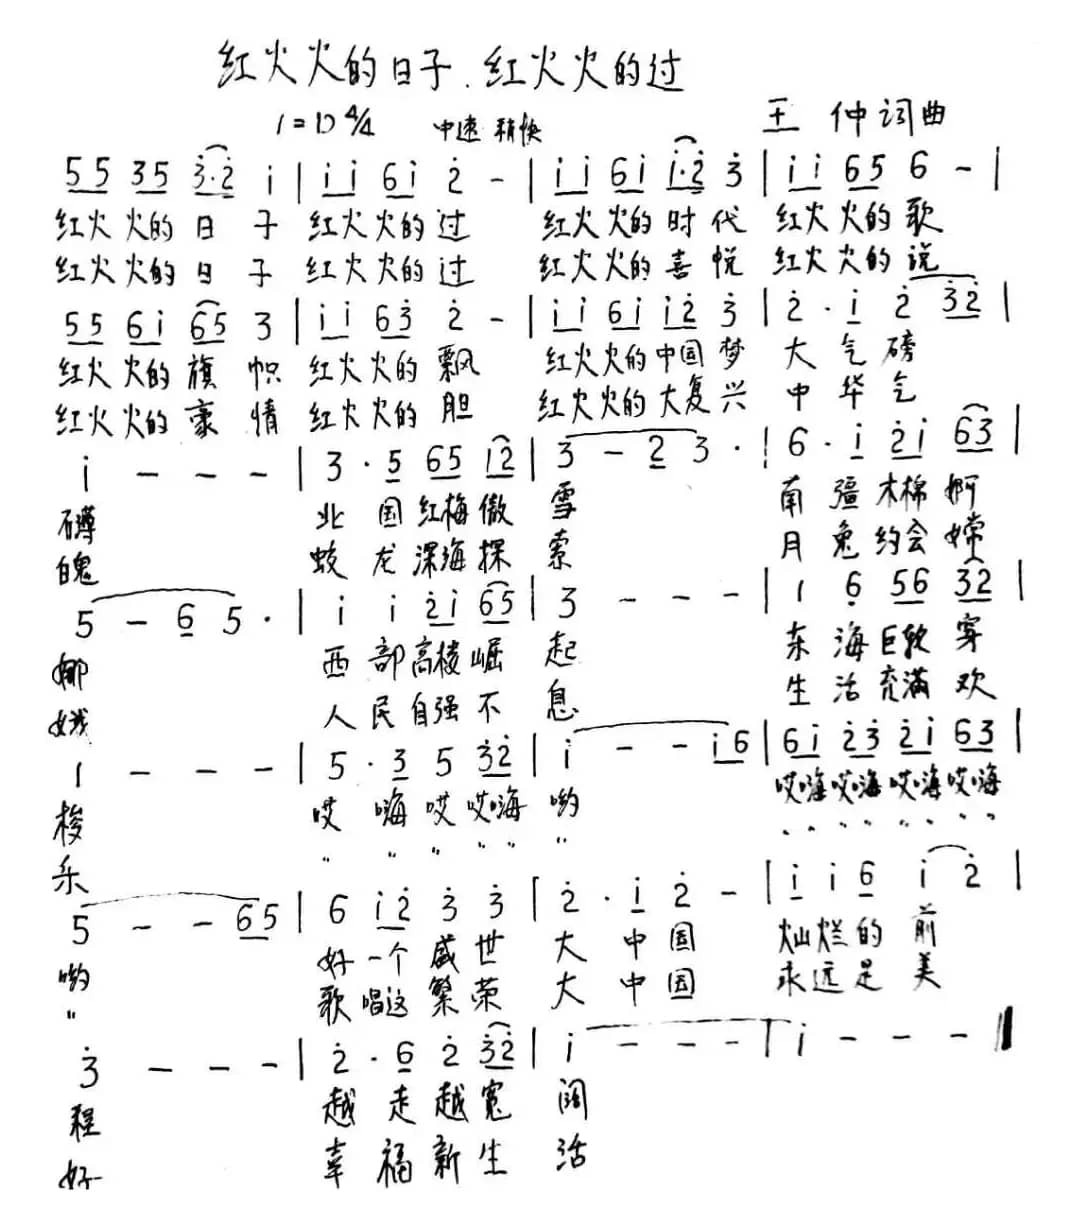 红火火的日子.红火火的过
1=D 4/4 中速 稍快 王 仲 词曲
5 5 3 5 3·2 i | i i 6 i 2 - | i i 6 i i·2 3 | i i 6 5 6 - |
红火 火的 日 子 红火 火的 过 红火 火的 时 代 红火 火的 歌
红火 火的 日 子 红火 火的 过 红火 火的 喜 悦 红火 火的 说
5 5 6 i 6 5 3 | i i 6 3 2 - | i i 6 i i 2 3 | 2 · i 2 3 2 |
红火 火的 旗 帜 红火 火的 飘 红火 火的 中国 梦 大 气 磅
红火 火的 豪 情 红火 火的 胆 红火 火的 大复 兴 中 华 气
i - - - | 3 · 5 6 5 i 2 | 3 - 2 3 · | 6 · i 2 i 6 3 |
礴 北 国 红梅 傲 雪 南 疆 木棉 婀
魄 蛟 龙 深海 探 索 月 兔 约会 嫦
5 - 6 5 · | i i 2 i 6 5 | 3 - - - | 1 6 5 6 3 2 |
娜 西 部 高棱 崛 起 东 海 巨软 穿
娥 人 民 自强 不 息 生 活 充满 欢
1 - - - | 5 · 3 5 3 2 | i - - i 6 | 6 i 2 3 2 i 6 3 |
梭 哎 嗨 哎 哎嗨 哟 哎嗨 哎嗨 哎嗨 哎嗨
乐 " " " " " " " " " " " " " "
5 - - 6 5 | 6 i 2 3 3 | 2 · i 2 - | i i 6 i 2 |
哟 好 一个 盛 世 大 中 国 灿 烂 的 前
" 歌 唱这 繁 荣 大 中 国 永 远 是 美
3 - - - | 2 · 6 2 3 2 | i - - - | i - - - ‖
程 越 走 越 宽 阔
好 幸 福 新 生 活